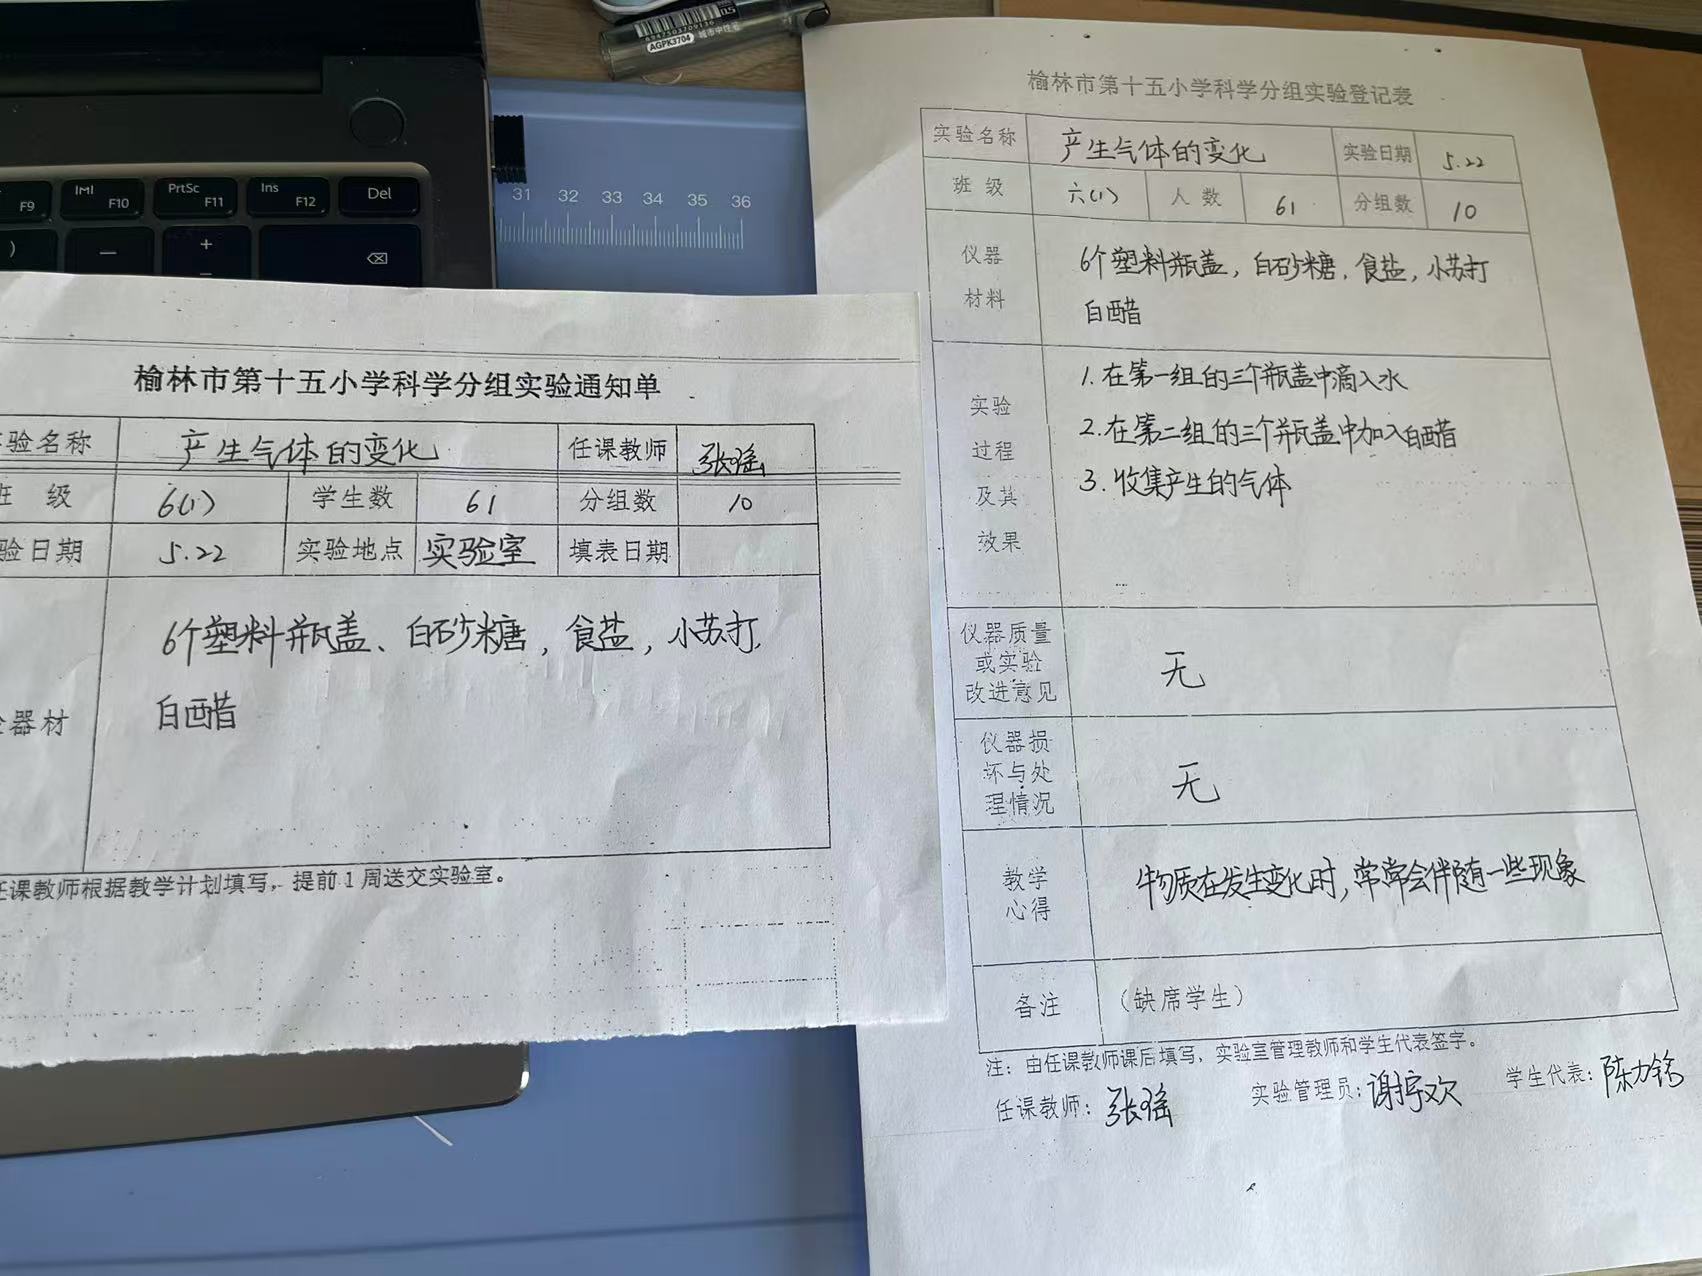 AGPK3704
城市中性笔
0.5
F9
F10
PrtSc
F11
Ins
F12
Del
31 32 33 34 35 36
榆林市第十五小学科学分组实验通知单
验名称 产生气体的变化 任课教师 张瑶
班 级 6(1) 学生数 61 分组数 10
验日期 5.22 实验地点 实验室 填表日期
器材
6个塑料瓶盖、白砂糖,食盐,小苏打,
白醋
任课教师根据教学计划填写,提前1周送交实验室。
榆林市第十五小学科学分组实验登记表
实验名称 产生气体的变化 实验日期 5.22
班 级 六(1) 人 数 61 分组数 10
仪器
材料
6个塑料瓶盖,白砂糖,食盐,小苏打
白醋
实验
过程
及其
效果
1.在第一组的三个瓶盖中滴入水
2.在第二组的三个瓶盖中加入白醋
3.收集产生的气体
仪器质量
或实验
改进意见
无
仪器损
坏与处
理情况
无
教学
心得
物质在发生变化时,常常会伴随一些现象
备注 (缺席学生)
注:由任课教师课后填写,实验室管理教师和学生代表签字。
任课教师:张瑶 实验管理员:谢宇欢 学生代表:陈力铭